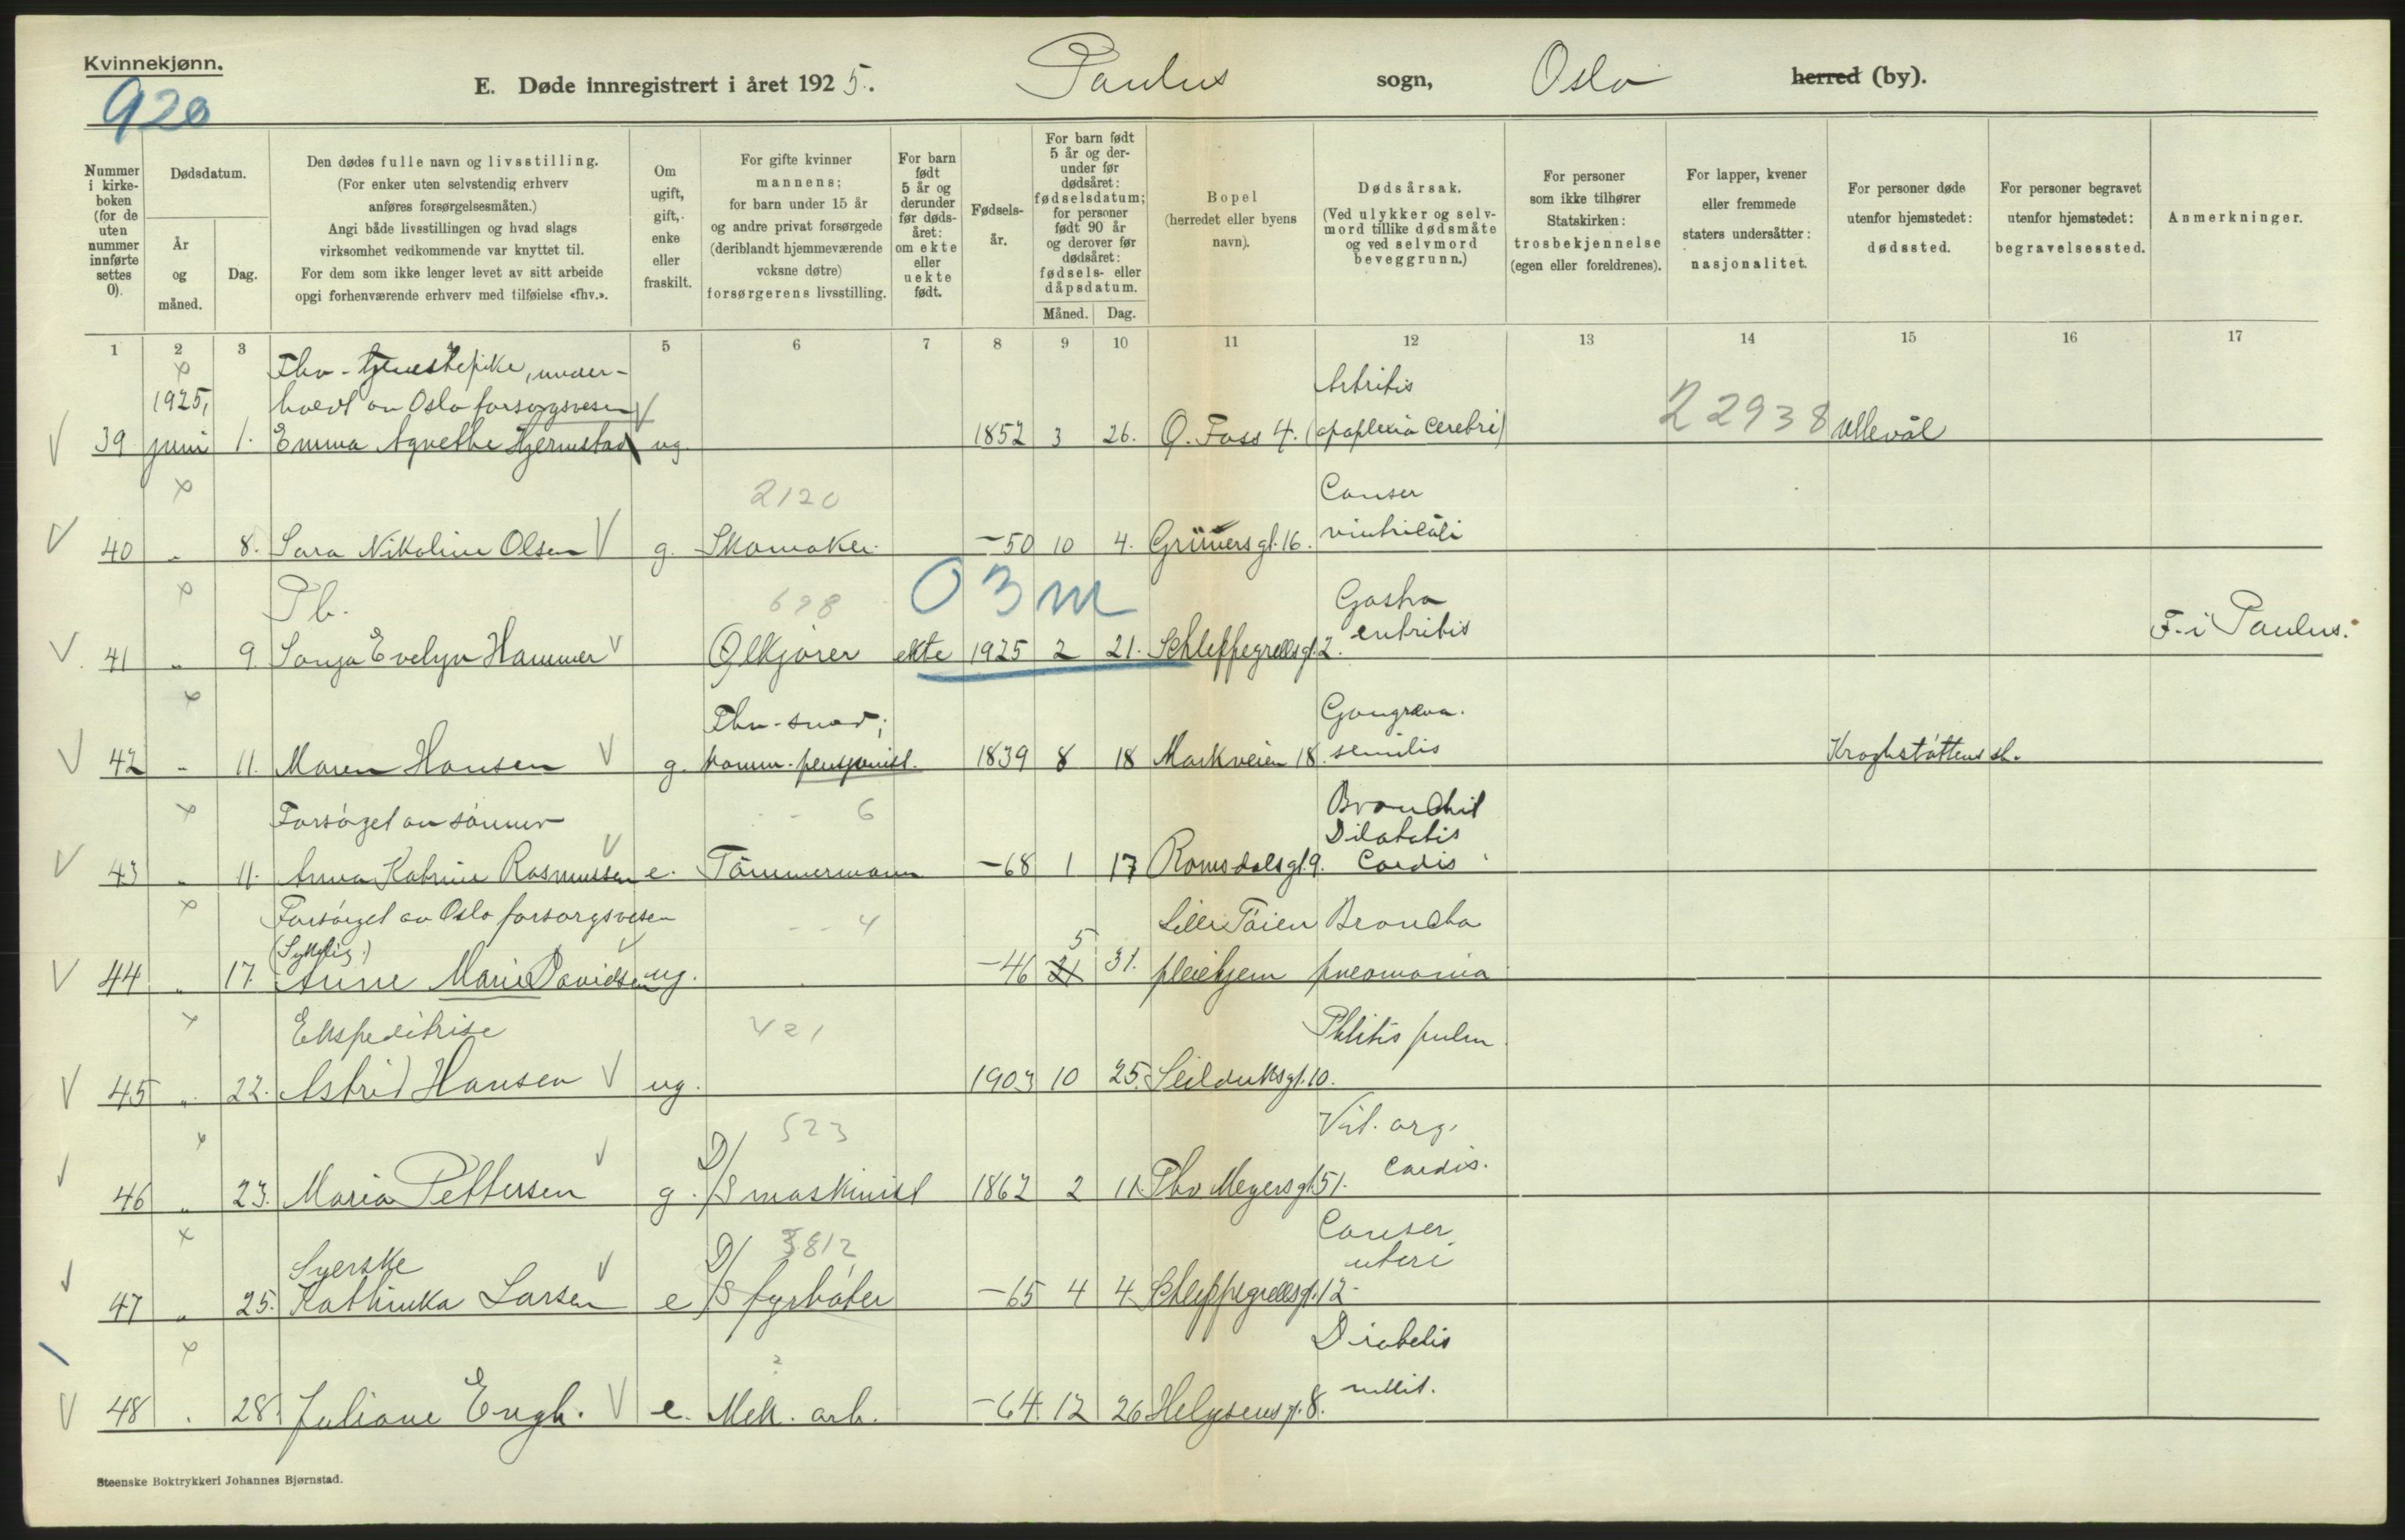 Kvinnekjønn.
920
E. Døde innregistrert i året 1925. Paulus sogn, Oslo herred (by).
Nummer i kirkeboken (for de uten nummer innførte settes 0).
Dødsdatum.
År og måned.
Dag.
Den dødes fulle navn og livsstilling.
(For enker uten selvstendig erhverv
anføres forsørgelsesmåten.)
Angi både livsstillingen og hvad slags
virksomhet vedkommende var knyttet til.
For dem som ikke lenger levet av sitt arbeide
opgi forhenværende erhverv med tilføielse «fhv.».
Om ugift, gift, enke eller fraskilt.
For gifte kvinner
mannens;
for barn under 15 år
og andre privat forsørgede
(deriblandt hjemmeværende
voksne døtre)
forsørgerens livsstilling.
For barn født 5 år og derunder før dødsåret: om ekte eller uekte født.
Fødselsår.
For barn født
5 år og derunder
før dødsåret:
fødselsdatum;
for personer
født 90 år
og derover før
dødsåret:
fødsels- eller
dåpsdatum.
Måned. Dag.
Bopel
(herredet eller byens
navn).
Dødsårsak.
(Ved ulykker og selvmord
tillike dødsmåte
og ved selvmord
beveggrunn.)
For personer
som ikke tilhører
Statskirken:
trosbekjennelse
(egen eller foreldrenes).
For lapper, kvener
eller fremmede
staters undersåtter:
nasjonalitet.
For personer døde
utenfor hjemstedet:
dødssted.
For personer begravet
utenfor hjemstedet:
begravelsessted.
Anmerkninger.
1 2 3 5 6 7 8 9 10 11 12 13 14 15 16 17
Fhv. tjenestepike, under-
1925, holdt av Oslo forsorgsvesen Artritis
39 juni 1. Emma Agnethe Hjermstad ug. 1852 3 26. O. Foss 4. (apoplexia cerebri) 22938 Ullevål
2120 Canser
40 " 8. Sara Nikoline Olsen g. Skomaker -50 10 4. Grünersgt. 16. vintriculi
Pb. 698 03m Gastro
41 " 9. Sonja Evelyn Hammer Ølkjører ekte 1925 2 21. Schleppegrellsgt. 2. entritis F. i Paulus.
Fhv. smed; Gangræna
42 " 11. Maren Hansen g. komm. pensjonist. 1839 8 18 Markveien 18. senilis Kroghstøttens sh.
Forsørget av sønner 6 Bronchit
Dilatatis
43 " 11. Anna Katrine Rasmussen e. Tømmermann -68 1 17 Romsdalsgt. 9. Cordis
Forsørget av Oslo forsorgsvesen 4 Lille Tøien Broncho
(Sykelig.) 5
44 " 17. Anne Marie Davidsen ug. -46 21 31. pleiehjem pneomonia
Ekspeditrise 421 Phtitis pulm.
45 " 22. Astrid Hansen ug. 1903 10 25. Seilduksgt. 10.
523 Vit. org.
46 " 23. Maria Pettersen g. D/S maskinist 1862 2 11. Thv. Meyersgt. 51. Cordis.
3812 Canser
Syerske uteri
47 " 25. Kathinka Larsen e D/S fyrbøter -65 4 4 Schleppegrellsgt. 12.
? Diabetis
48 " 28. Juliane Engh. e. Mek. arb. -64. 12 26 Helgesensgt. 8. mellit.
Steenske Boktrykkeri Johannes Bjørnstad.